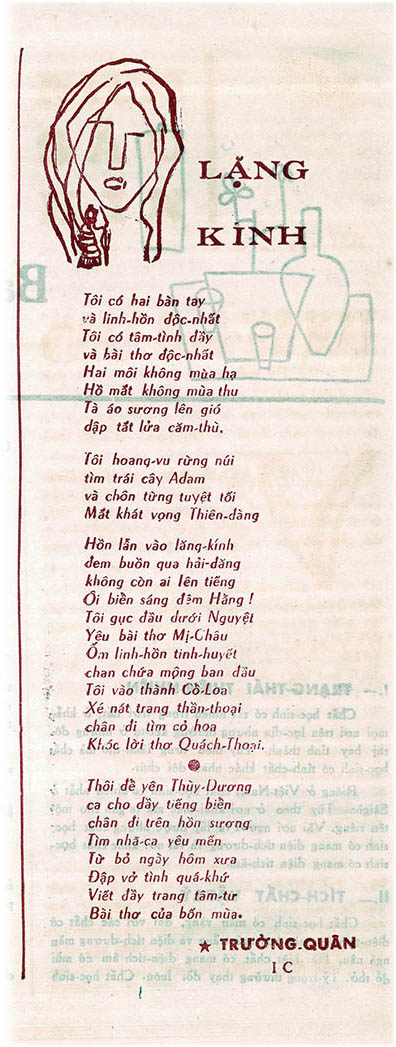 LẶNG
KÍNH
Tôi có hai bàn tay
và linh-hồn độc-nhất
Tôi có tâm-tình đầy
và bài thơ độc-nhất
Hai môi không mùa hạ
Hồ mắt không mùa thu
Tà áo sương lên gió
dập tắt lửa căm-thù.
Tôi hoang-vu rừng núi
tìm trái cây Adam
và chôn từng tuyệt tối
Mắt khát vọng Thiên-đàng
Hồn lẫn vào lăng-kính
đem buồn qua hải-đăng
không còn ai lên tiếng
Ôi biển sáng đêm Hằng !
Tôi gục đầu dưới Nguyệt
Yêu bài thơ Mị-Châu
Ôm linh-hồn tinh-huyết
chan chứa mộng ban đầu
Tôi vào thành Cổ-Loa
Xé nát trang thần-thoại
chân đi tìm cỏ hoa
Khóc lời thơ Quách-Thoại.
Thôi để yên Thùy-Dương
ca cho đầy tiếng biển
chân đi trên hồn sương
Tìm nhã-ca yêu mến
Từ bỏ ngày hôm xưa
Đập vỡ tình quá-khứ
Viết đầy trang tâm-tư
Bài thơ của bốn mùa.
★ TRƯỜNG-QUÂN
1 C